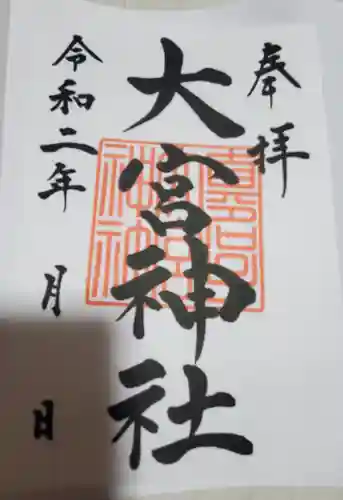 奉拝
大宮神社
令和二年 月 日